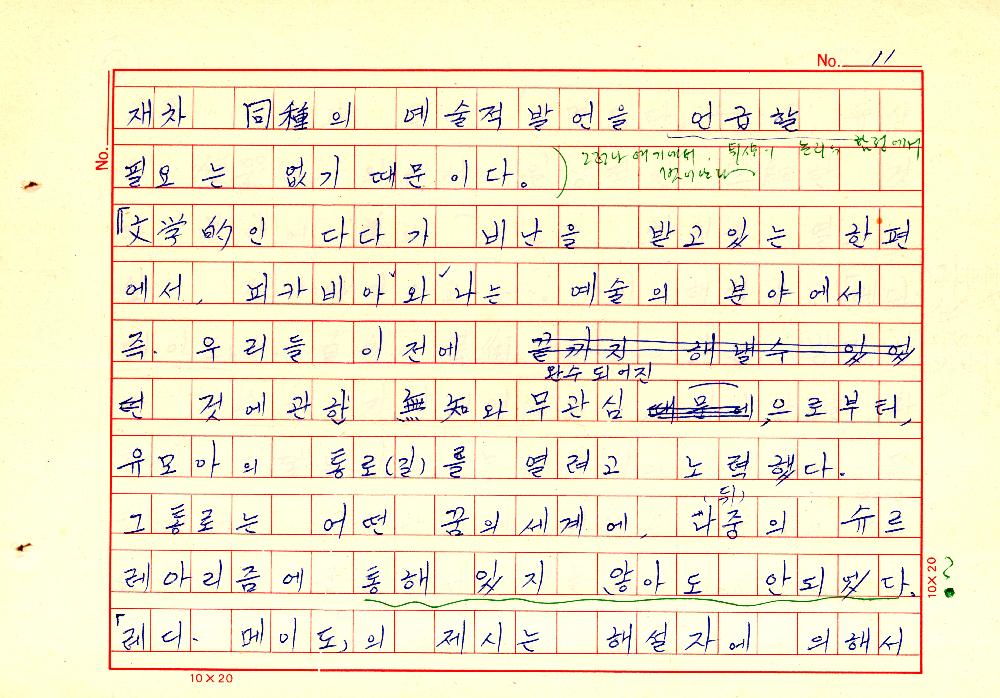 No. 11
재차 同種의 예술적 발언을 언급할
No.
필요는 없기 때문이다.
그러나 여기에서, 뒤샹이 논리의 함정에서
벗어난다
「文学的인 다다가 비난을 받고있는 한편
에서, 피카비아와 나는 예술의 분야에서
즉. 우리들 이전에 끝까지 해낼수 있었
완수되어진
던 것에관한 無知와 무관심 때문에, 으로부터,
유모아의 통로(길)를 열려고 노력했다.
(뒤)
그통로는 어떤 꿈의세계에, 나중의 슈르
레아리즘에 통해 있지 않아도 안되었다.
10×20
?
「레디·메이드」의 제시는 해설자에 의해서
10×20